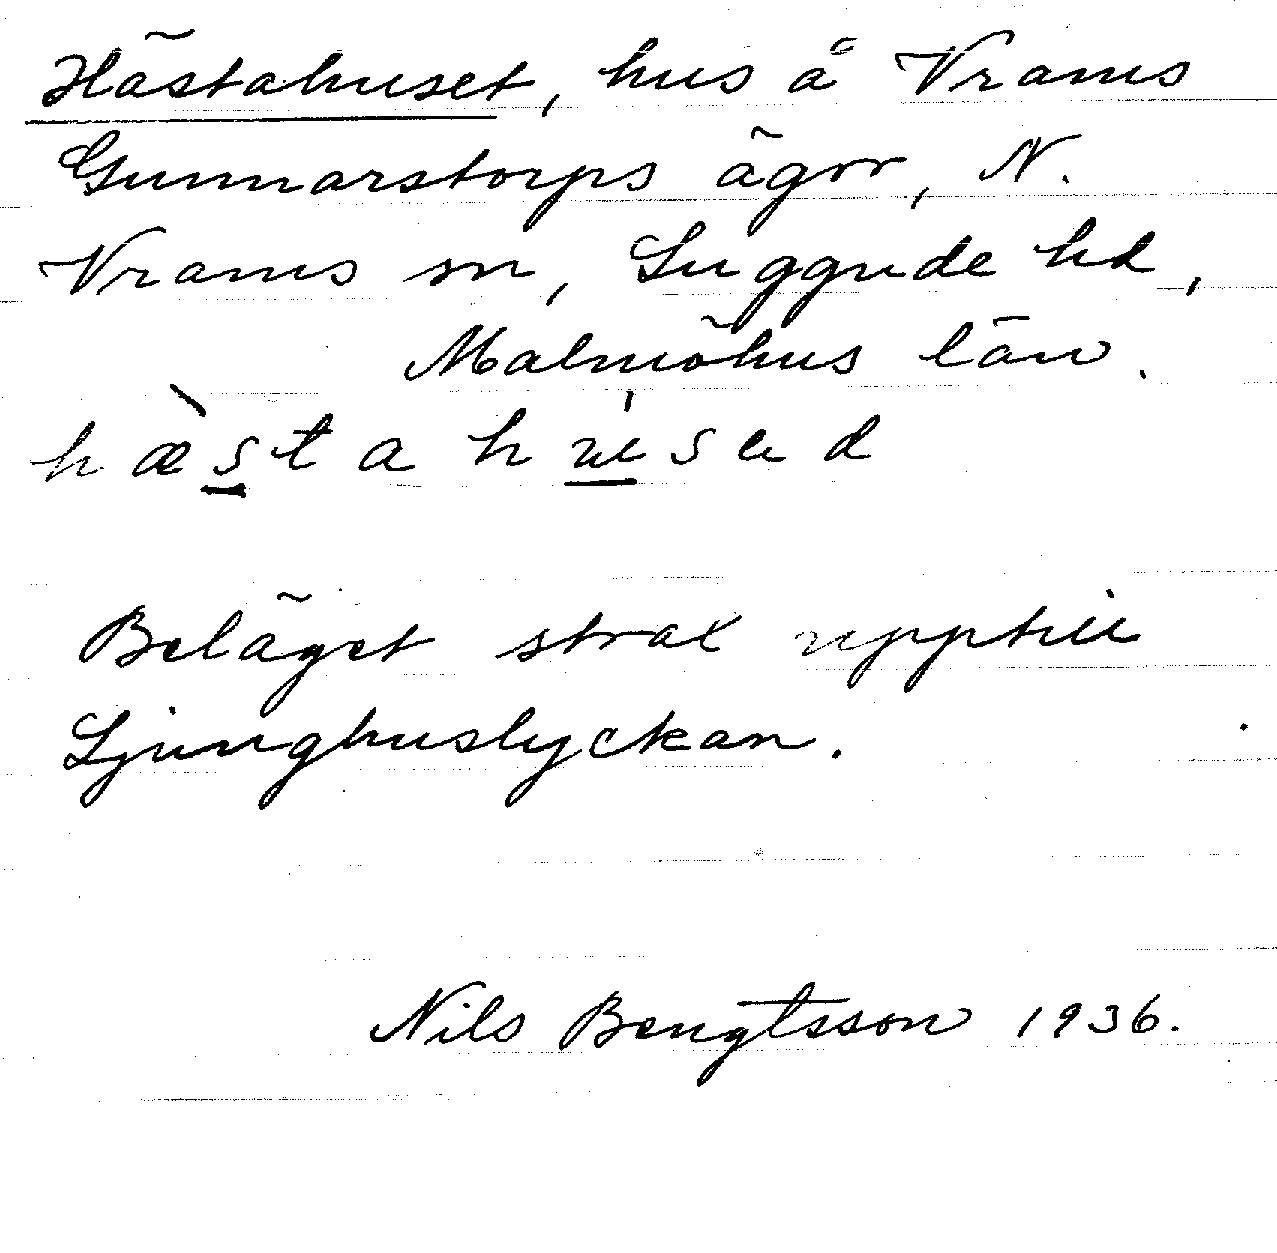 Hästahuset, hus å Vrams
Gunnarstorps ägor, N.
Vrams sn, Luggude hd,
Malmöhus län.
hæ̀stahu̍sed
Beläget strax upptill
Ljunghuslyckan.
Nils Bengtsson 1936.